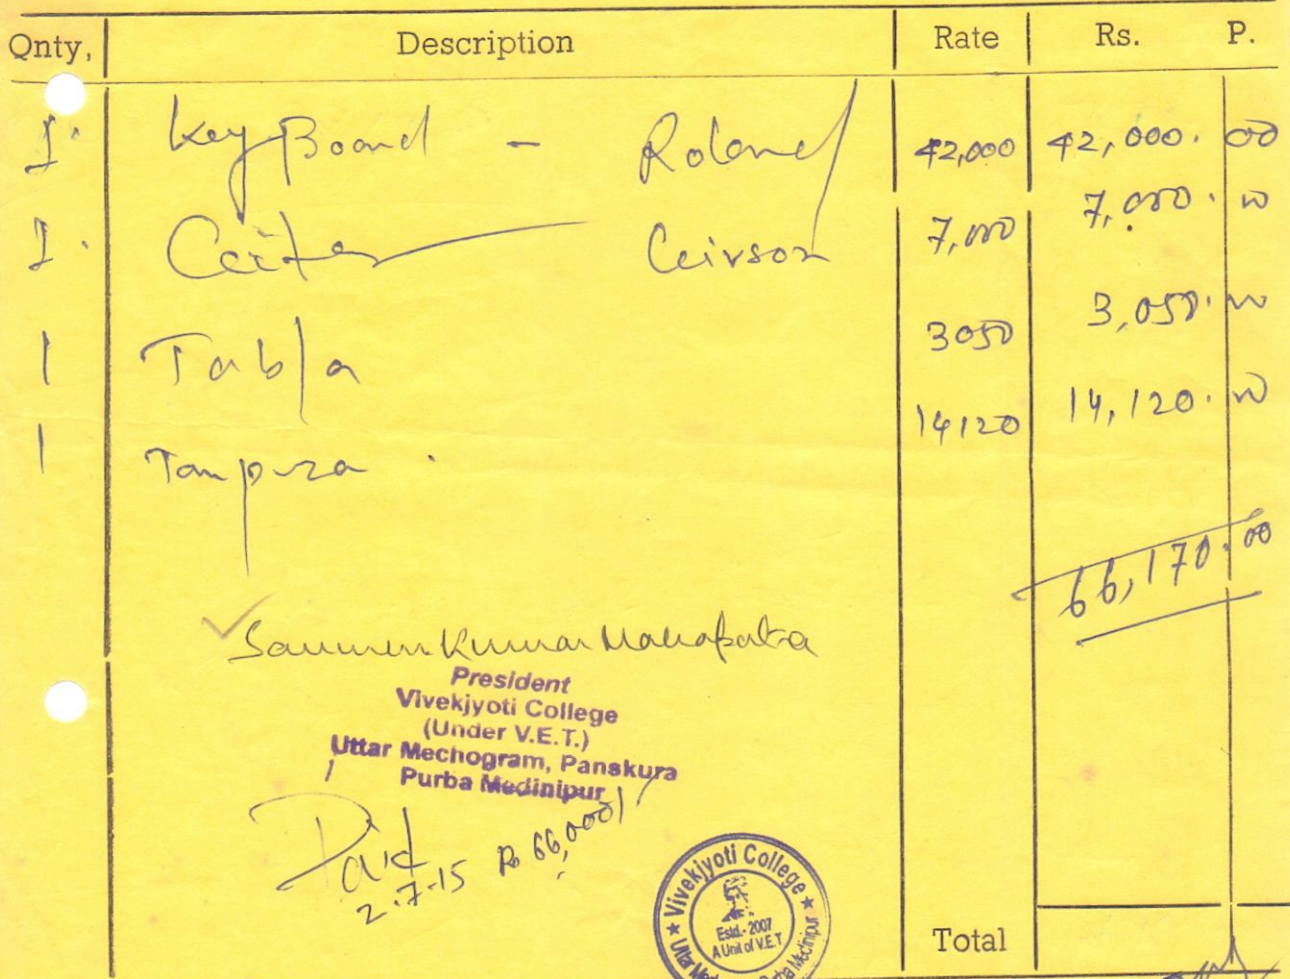 Qnty, Description Rate Rs. P.
1. Key Board - Roland 42,000 42,000. 00
1. Ceiter Ceivson 7,000 7,000. 00
1 Tabla 3050 3,050. 00
1 Tanpura 14120 14,120. 00
66,170.00
Saumen Kumar Mahapatra
President
Vivekjyoti College
(Under V.E.T.)
Uttar Mechogram, Panskura
Purba Medinipur
Paid
2.7.15 Rs 66,000/
Vivekjyoti College
Estd.- 2007
A Unit of V.E.T
Purba Medinipur
Total